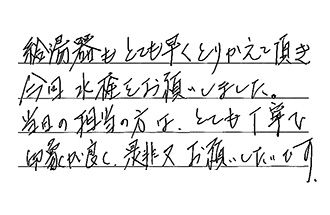 給湯器もとても早くとりかえて頂き
今回水栓をお願いしました。
当日の担当の方は、とても丁寧で
印象が良く、是非又お願いしたいです。